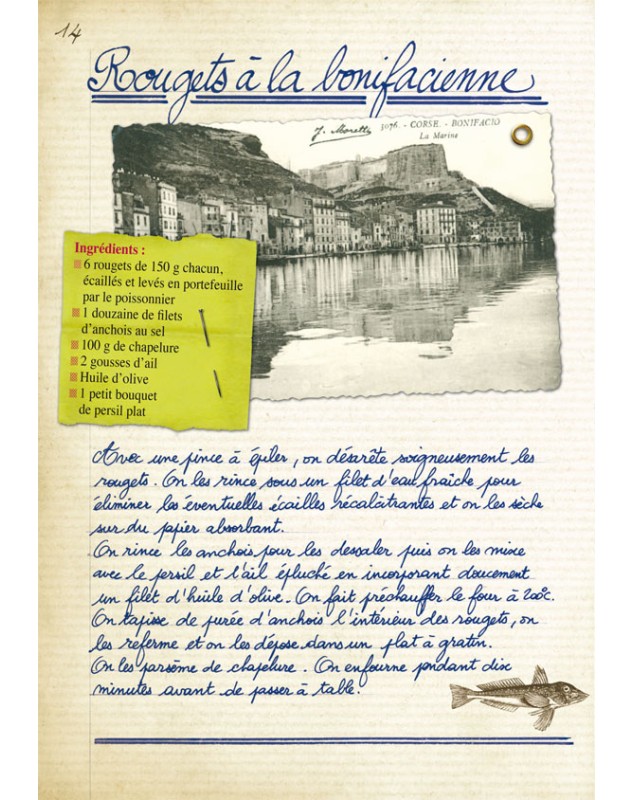 14
Rougets à la bonifacienne
J. Moretti
3076. - CORSE. - BONIFACIO
La Marine
Ingrédients :
6 rougets de 150 g chacun,
écaillés et levés en portefeuille
par le poissonnier
1 douzaine de filets
d'anchois au sel
100 g de chapelure
2 gousses d'ail
Huile d'olive
1 petit bouquet
de persil plat
Avec une pince à épiler, on désarête soigneusement les
rougets. On les rince sous un filet d'eau fraîche pour
éliminer les éventuelles écailles récalcitrantes et on les sèche
sur du papier absorbant.
On rince les anchois pour les dessaler puis on les mixe
avec le persil et l'ail épluché en incorporant doucement
un filet d'huile d'olive. On fait préchauffer le four à 200°c.
On tapisse de purée d'anchois l'intérieur des rougets, on
les referme et on les dépose dans un plat à gratin.
On les parsème de chapelure. On enfourne pendant dix
minutes avant de passer à table.